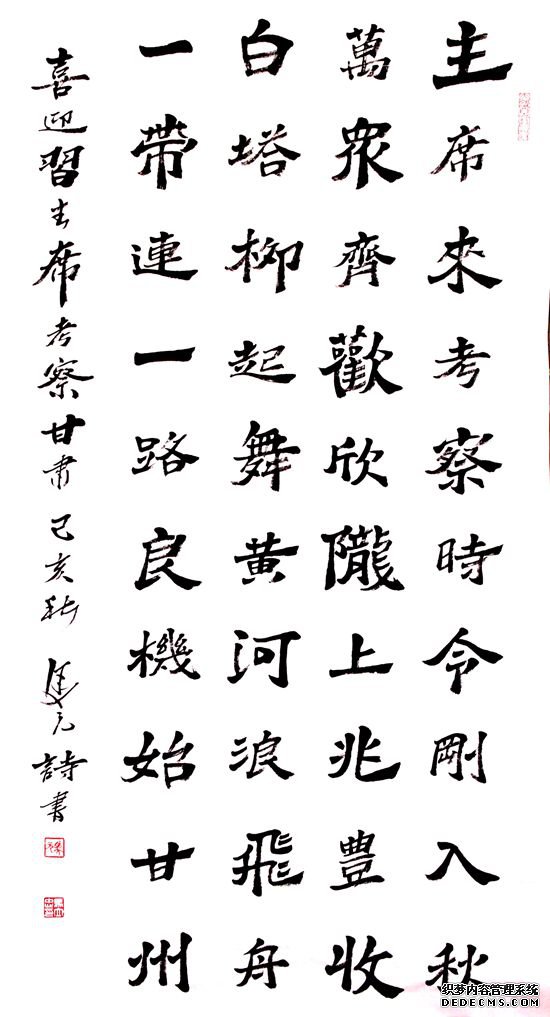 主席來考察時令剛入秋
萬眾齊歡欣隴上兆豐收
白塔柳起舞黄河浪飛舟
一帶連一路良機始甘州
喜迎習主席考察甘肅己亥秋元詩書
织梦内容管理系统
DEDECMS.COM